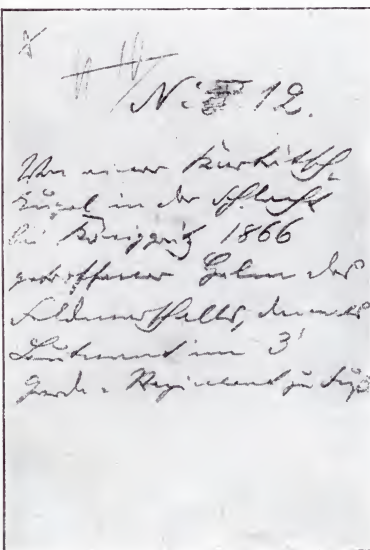 N: 12.
Von einer Kartätsch-
kugel in der Schlacht
bei Königgrätz 1866
getroffener Helm des
Feldmarschalls, damals
Leutnant im 3'
Garde-Regiment zu Fuß